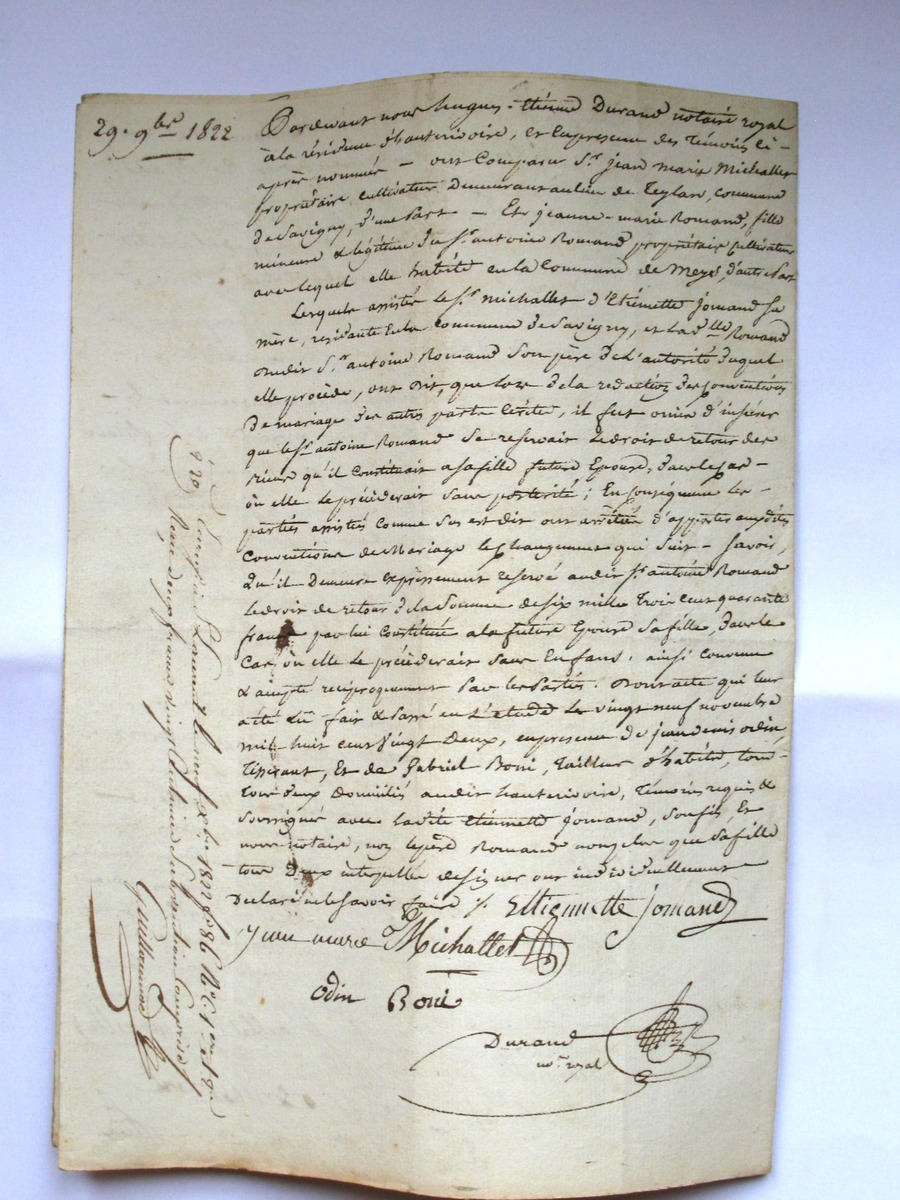 29. 9bre 1822
Pardevant nous hugues-Etienne Durand notaire royal
à la résidence d'hauterivoire, et en presence des Témoins ci-
après nommés - ont Comparu Sr. jean marie Michallet
propriétaire cultivateur Demeurant au lieu de Teylan, Commune
de Savigny, d'une Part - Et jeanne-marie Romand, fille
mineure & légitime du Sr. antoine Romand propriétaire Cultivateur
avec lequel elle habite en la Commune de Meys, d'autre Part
Lesquels assistés le Sr. michallet d'Etiennette Jomand sa
mère, residante en la commune de Savigny, et la dlle Romand
dudit Sr. antoine Romand son père de l'autorité duquel
elle procède, ont dit, que lors de la redaction des Conventions
de mariage des autres parts écrites, il fut omis d'insérer
que le Sr. antoine Romand se reservait le droit de retour des
sieur qu'il Constituait a sa fille future Epouse, dans le cas -
où elle le précéderait sans postérité ; En conséquence les -
parties assistés Comme dus est dit ont arrêtée d'apporter auxdites
Conventions de Mariage le changement qui suit - savoir,
Qu'il Demeure expressement reservé audit Sr. antoine Romand
le droit de retour de la Somme de six mille trois cent quarante
francs par lui Constituée a la future Epouse sa fille, dans le
Cas, où elle le précéderait sans Enfans. ainsi convenu
& accepté réciproquement par les Parties. Dont acte qui leur
a été lu fait & Passé en L'etude le vingt neuf novembre
mil huit cent vingt Deux, en presence de jean denis odin,
Tisserant, Et de Gabriel Boni, Tailleur d'habits, tous
tous deux domiciliés audit hauterivoire, Témoins requis &
soussignés avec ladite Etiennette Jomand, son fils, Et
nous notaire, non le père Romand non plus que sa fille
tous Deux interpellés de signer ont individuellement
Declaré ne le savoir faire ./. Ettiennette Jomand
jean marie Michallet
Odin Boni
Durand
nore. royal
Enregistré à St Laurent le neuf Xbre 1822 fo 86 Ro. C. 1ere et 2e
Reçu deux francs vingt centimes subvention Comprise
Guillermond